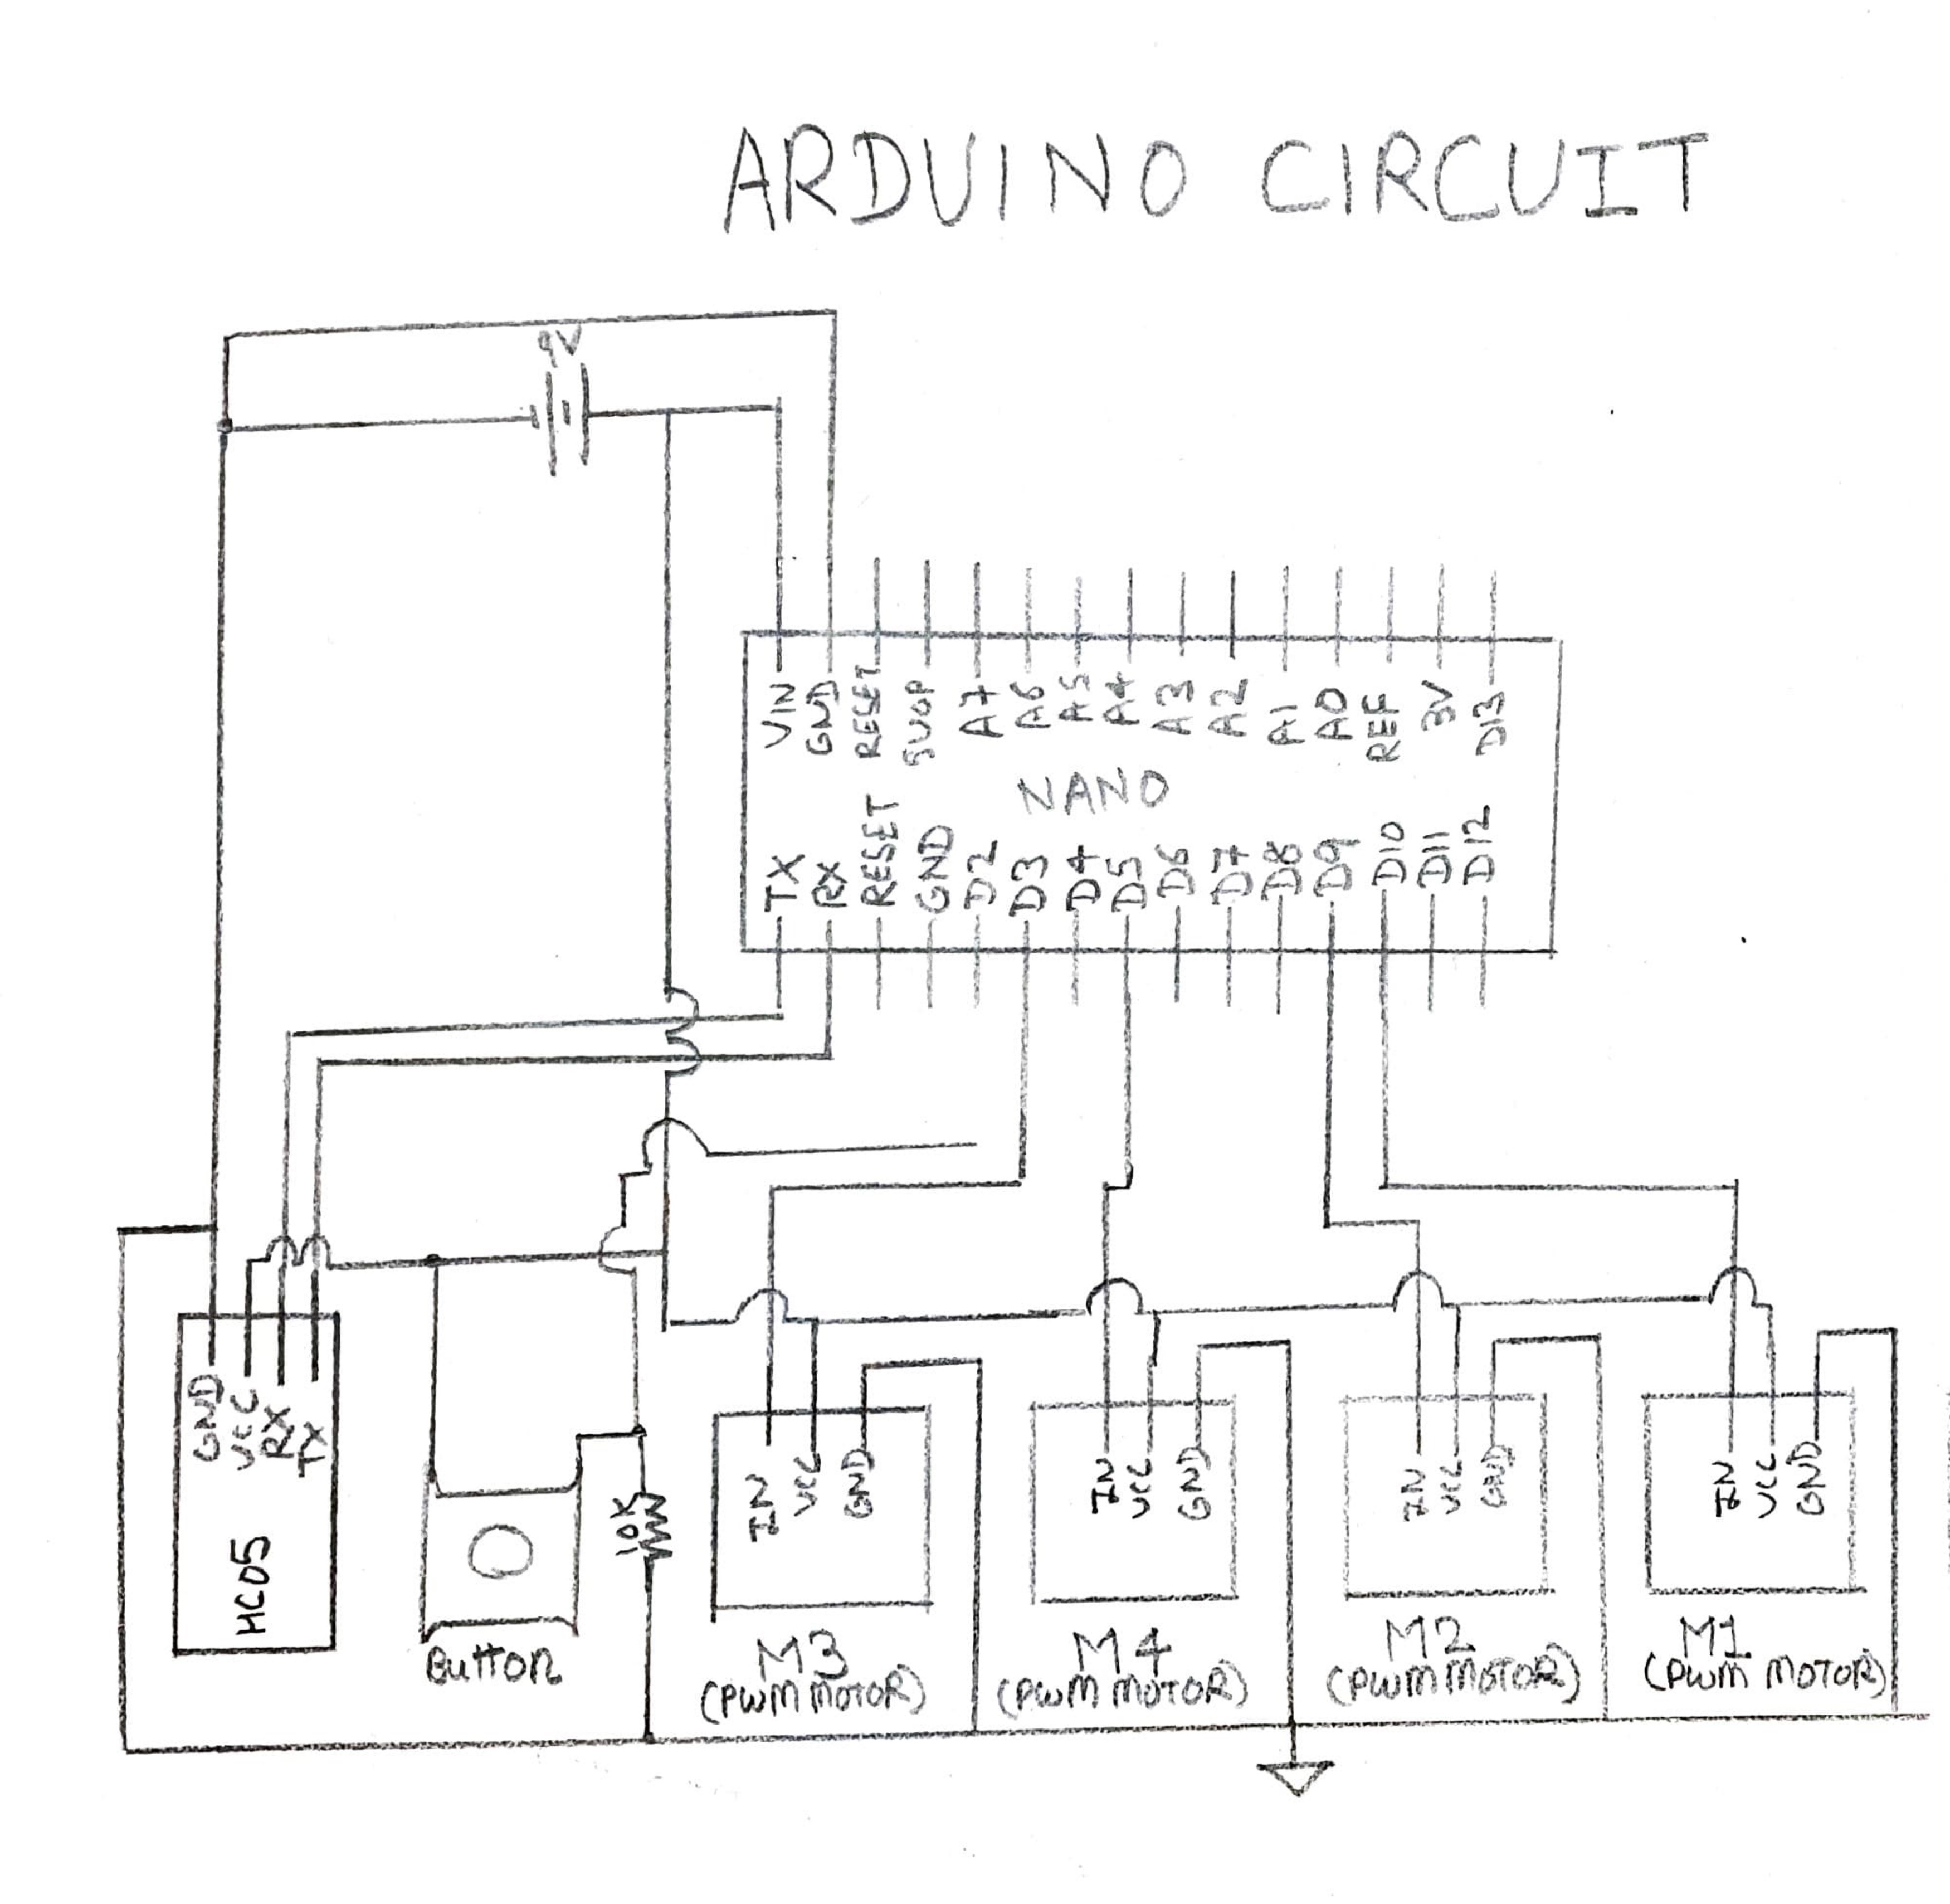 ARDUINO CIRCUIT
9V
VIN
GND
RESET
5VOP
A7
A6
A5
A4
A3
A2
A1
A0
REF
3V
D13
NANO
TX
RX
RESET
GND
D2
D3
D4
D5
D6
D7
D8
D9
D10
D11
D12
GND
VCC
RX
TX
HC05
Button
10K
IN
VCC
GND
M3
(PWM MOTOR)
IN
VCC
GND
M4
(PWM MOTOR)
IN
VCC
GND
M2
(PWM MOTOR)
IN
VCC
GND
M1
(PWM MOTOR)